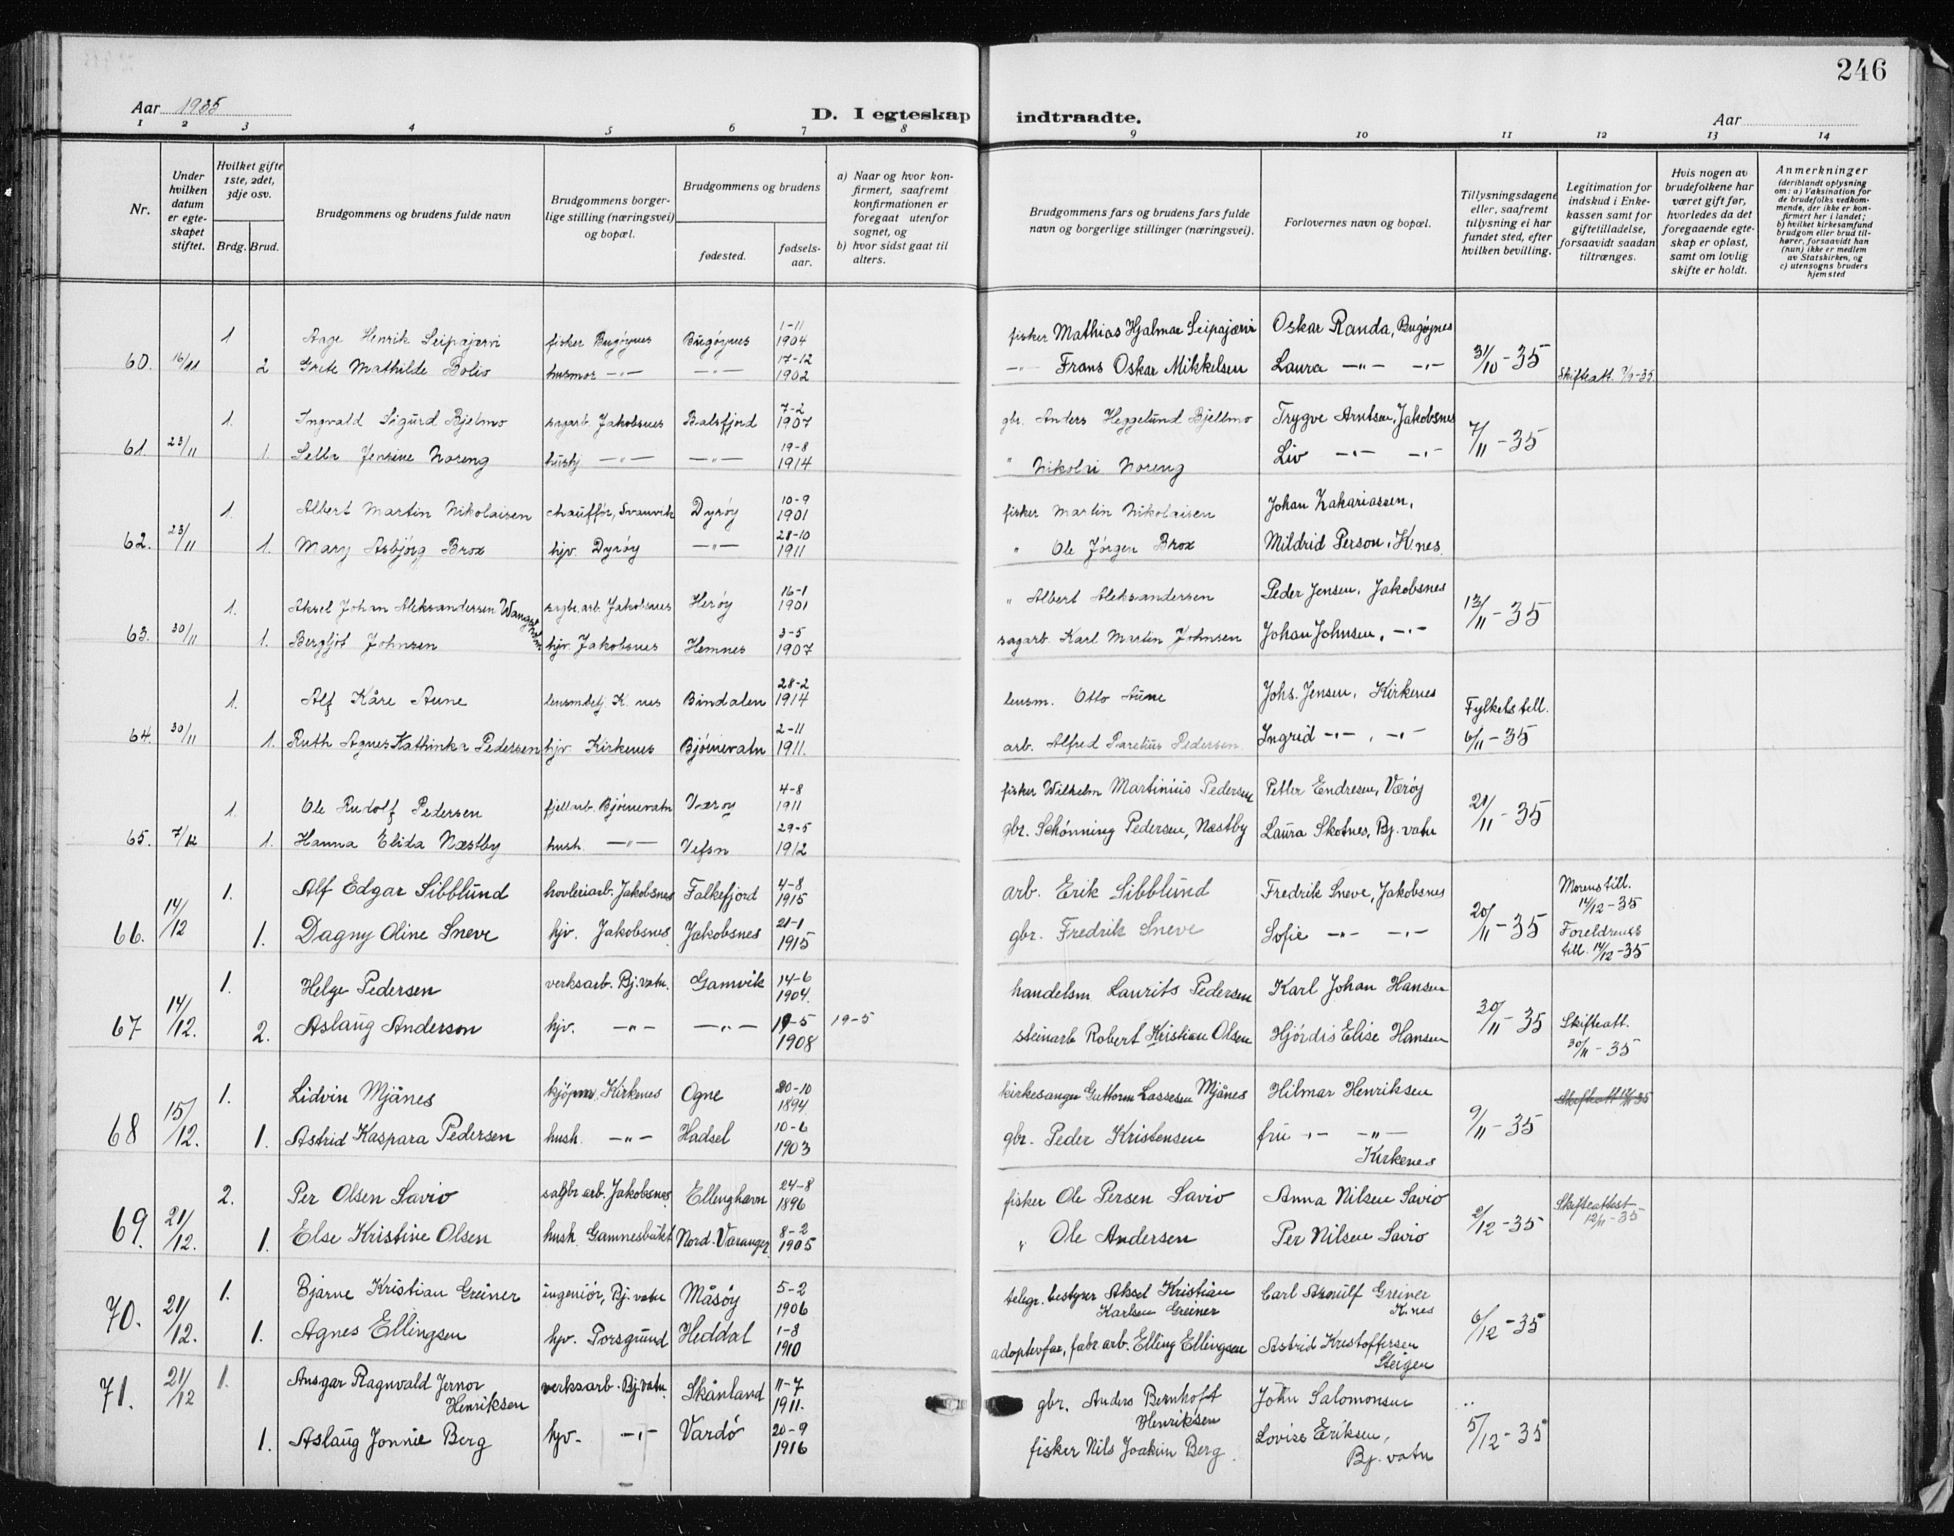 246
Aar 1935
D. I egteskap indtraadte.
Aar
1 2 3 4 5 6 7 8 9 10 11 12 13 14
Nr.
Under hvilken datum er egte-skapet stiftet.
Hvilket gifte 1ste, 2det, 3dje osv.
Brdg. Brud.
Brudgommens og brudens fulde navn
Brudgommens borger-lige stilling (næringsvei) og bopæl.
Brudgommens og brudens
fødested.
fødsels-aar.
a) Naar og hvor kon-firmert, saafremt konfirmationen er foregaat utenfor sognet, og
b) hvor sidst gaat til alters.
Brudgommens fars og brudens fars fulde navn og borgerlige stillinger (næringsvei).
Forlovernes navn og bopæl.
Tillysningsdagene eller, saafremt tillysning ei har fundet sted, efter hvilken bevilling.
Legitimation for indskud i Enke-kassen samt for giftetilladelse, forsaavidt saadan tiltrænges.
Hvis nogen av brudefolkene har været gift før, hvorledes da det foregaaende egte-skap er opløst, samt om lovlig skifte er holdt.
Anmerkninger
(deriblandt oplysning om: a) Vaksination for de brudefolks vedkom-mende, der ikke er kon-firmert her i landet; b) hvilket kirkesamfund brudgom eller brud til-hører, forsaavidt han (hun) ikke er medlem av Statskirken, og c) utensogns bruders hjemsted
1 Aage Henrik Seipajærvi fisker Bugöynes Bugöynes 1-11 1904 fisker Mathias Hjalmar Seipajærvi Oskar Randa, Bugøynes
60. 16/11 2 Grete Mathilde Bolio husmor -"- -"- 17-12 1902 -"- Frans Oskar Mikkelsen Laura -"- -"- 31/10-35 Skifteatt. 7/9-35
1. Ingvald Sigurd Bjelmo sagarb. Jakobsnes Balsfjord 7-2 1907 gbr. Anders Heggelund Bjellmo Trygve Arntsen, Jakobsnes
61. 23/11 1. Selba Jensine Noreng hushj -"- -"- 19-8 1914 " Nikolai Noreng Liv -"- -"- 7/11-35
1. Albert Martin Nikolaisen chauffør, Svanvik Dyrøy 10-9 1901 fisker Martin Nikolaisen Johan Zakariassen,
62. 23/11 1. Mary Asbjörg Brox hjv. Dyröy -"- 28-10 1911 " Ole Jørgen Brox Mildrid Person, K.nes.
1. Aksel Johan Aleksandersen sagbr.arb. Jakobsnes Herøy 16-1 1901 " Albert Aleksandersen Peder Jensen, Jakobsnes
63. 30/11 1. Bergljot Johnsen hjv. Jakobsnes Hemnes 3-5 1907 sagarb. Karl Martin Johnsen Johan Johnsen, -"- 13/11-35
1. Alf Kåre Aune lensmbetj K.nes Bindalen 28-2 1914 lensm. Otto Aune Johs. Jensen, Kirkenes Fylkets till.
64. 30/11 1. Ruth Agnes Kathinka Pedersen hjv Kirkenes Bjørnevatn 2-11 1911. arb. Alfred Paretius Pedersen. Ingrid -"-, -"- 6/11-35
1. Ole Rudolf Pedersen fjellarb. Bjørnevatn Værøy 4-8 1911 fisker Wilhelm Martinius Pedersen Petter Endresen, Værøy
65. 7/12 1. Hanna Elida Næstby hush. -"- Vefsn 29-5 1912 gbr. Schønning Pedersen, Næstby Laura Skotnes, Bj. vatn 21/11-35
1. Alf Edgar Sibblund hovleriarb. Jakobsnes Falkefjord 4-8 1915 arb. Erik Sibblund Fredrik Sneve, Jakobsnes Morens till. 14/12-35
66. 14/12 1. Dagny Oline Sneve hjv. Jakobsnes Jakobsnes 21-1 1915 gbr. Fredrik Sneve Sofie -"- -"- 20/11-35 Foreldrenes till. 14/12-35
1. Helge Pedersen verksarb. Bj. vatn. Gamvik 14-6 1904. handelsm Laurits Pedersen Karl Johan Hansen
67 14/12. 2. Aslaug Anderson hjv. -"- -"- 19-5 1908 19-5 steinarb Robert Kristian Olsen Hjördis Elise Hansen 20/11-35 Skifteatt. 30/11-35
1. Lidvin Mjånes kjöpm. Kirkenes Ogne 20-10 1894 kirkesanger Guttorm Lassesen Mjånes Hilmar Henriksen
68 15/12. 1. Astrid Kaspara Pedersen hush. -"- Hadsel 10-6 1903 gbr. Peder Kristensen fru -"- -"- Kirkenes 9/11-35
2. Per Olsen Savio sagbr arb. Jakobsnes Ellenghavn 24-8 1896 fisker Ole Persen Savio Anna Nilsen Savio Skifteattest 12/11-35
69. 21/12. 1. Else Kristine Olsen hush. Gamnesbukt Nord-Varanger 8-2 1905 " Ole Andersen Per Nilsen Savio 2/12-35
1. Bjarne Kristian Greiner ingeniör, Bj. vatn Måsöy 5-2 1906 telegr. bestyrer Aksel Kristian Karlsen Greiner Carl Arnulf Greiner K.nes
70. 21/12. 1. Agnes Ellingsen hjv. Porsgrund Heddal 1-8 1910 adoptivfar, fabr arb. Elling Ellingsen Astrid Kristoffersen Steigen 6/12-35
71. 21/12 1. Ansgar Ragnvald Jernor Henriksen verksarb. Bj. vatn. Skånland 11-7 1911. gbr. Anders Bernhoft Henriksen John Salomonsen
1. Aslaug Jonnie Berg hjv. -"- Vardö 20-9 1916 fisker Nils Joakim Berg. Lovise Eriksen, Bj. vatn 5/12-35